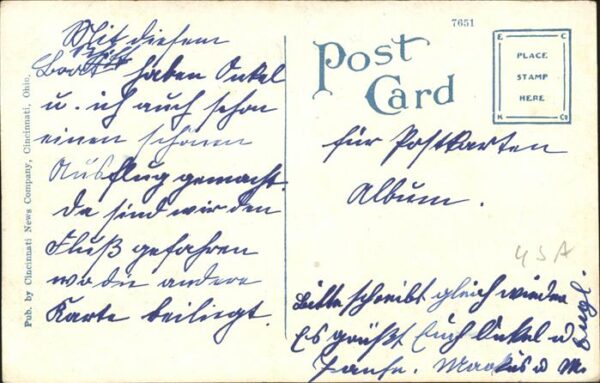 Mit diesem
Boot haben Onkel
u. ich auch schon
einen schönen
Ausflug gemacht.
Da sind wir den
Fluß gefahren
wo die andere
Karte beiliegt.
Pub. by Cincinnati News Company, Cincinnati, Ohio.
7651
Post
Card
E C
PLACE
STAMP
HERE
K Co
für Postkarten
Album.
USA
Bitte schreibt gleich wieder
Es grüßt Euch Onkel u.
Tante. Markus u M.